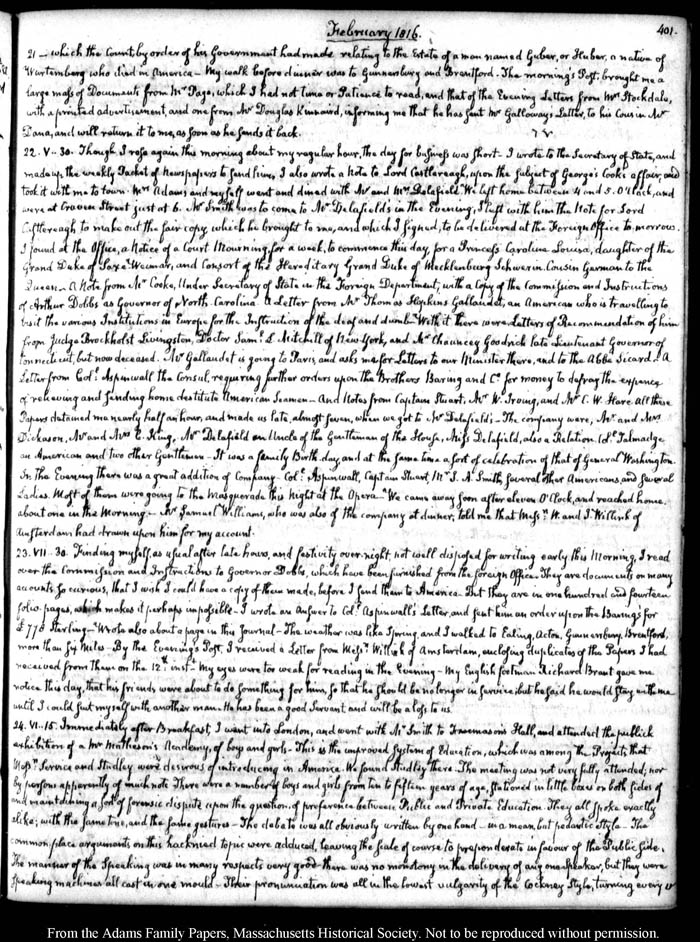 February 1816.
401.
21 — which the Count, by order of his Government had made relating to the Estate of a man named Guber, or Huber, a native of
Wurtemberg who died in America — My walk before dinner was to Gunnersbury and Brentford. The morning's Post, brought me a
large mass of Documents from Mr Page, which I had not time or Patience to read, and that of the Evening Letters from Mr Stockdale,
with a printed advertisement, and one from Mr Douglas Kinnaird, informing me that he has sent Mr Galloway's Letter, to his Cousin Mr
Dana, and will return it to me, as soon as he sends it back.
22. V.-30. Though I rose again this morning about my regular hour, the day for business was short. I wrote to the Secretary of State, and
made up, the weekly Packet of Newspapers to send him, I also wrote a Note to Lord Castlereagh, upon the subject of George Cook's affair, and
took it with me to town. Mrs Adams and myself went and dined with Mr and Mrs Delafield. We left home between 4 and 5. O'Clock, and
were at Craven Street just at 6. Mr Smith was to come to Mr Delafield's in the Evening; I left with him the Note for Lord
Castlereagh to make out the fair copy, which he brought to me, and which I signed, to be delivered at the Foreign Office to-morrow.
I found at the Office, a Notice of a Court Mourning, for a week, to commence this day, for a Princess Caroline Louisa, daughter of the
Grand Duke of Saxe-Weimar, and Consort of the Hereditary Grand Duke of Mecklenburg Schwerin. Cousin German to the
Queen — A Note from Mr Cooke, Under Secretary of State in the Foreign Department, with a Copy of the Commission and Instructions
of Arthur Dobbs as Governor of North Carolina. A Letter from Mr Thomas Hopkins Gallaudet, an American who is travelling to
visit the various Institutions in Europe for the Instruction of the deaf and dumb — With it there were Letters of Recommendation of him
from Judge Brockholst Livingston, Doctor Saml L. Mitchill of New-York, and Mr Chauncey Goodrich late Lieutenant Governor of
Connecticut, but now deceased. Mr Gallaudet is going to Paris, and asks me for Letters to our Minister there, and to the Abbé Sicard — A
Letter from Coll Aspinwall the Consul, requiring further orders upon the Brothers Baring and Co for money to defray the expence
of relieving and sending home destitute American Seamen — And Notes from Captain Stuart, Mr W. Irving, and Mr C. W. Hare. All these
Papers detained me nearly half an hour, and made us late, almost seven, when we got to Mr Delafield's — The company were, Mr and Mrs
Dickason, Mr and Mrs C. King, Mr Delafield an Uncle of the Gentleman of the House, Miss Delafield, also a Relation. Coll Talmadge
an American and two other Gentlemen — It was a family Birth-day, and at the same time a sort of celebration of that of General Washington.
In the Evening there was a great addition of Company. Coll Aspinwall, Captain Stuart, Mr J. A. Smith, several other Americans, and several
Ladies. Most of them were going to the Masquerade this Night at the Opera. We came away soon after eleven O'Clock, and reached home,
about one in the Morning — Mr Samuel Williams, who was also of the company at dinner, told me that Messrs W. and J. Willink of
Amsterdam had drawn upon him for my account.
23. VII.-30. Finding myself, as usual after late hours, and festivity over night, not well disposed for writing early this Morning, I read
over the Commission and Instructions to Governor Dobbs, which have been furnished from the foreign Office. They are documents on many
accounts so curious, that I wish I could have a copy of them made, before I send them to America. But they are in one hundred and fourteen
folio pages, which makes it perhaps impossible — I wrote an Answer to Coll Aspinwall's Letter, and sent him an order upon the Barings for
£770 Sterling — Wrote also about a page in this Journal — The weather was like Spring, and I walked to Ealing, Acton, Gunnersbury, Brentford,
more than six Miles — By the Evening's Post, I received a Letter from Messrs Willink of Amsterdam, enclosing duplicates of the Papers I had
received from them on the 12th instt My eyes were too weak for reading in the Evening — My English footman Richard Brant gave me
notice this day, that his friends were about to do something for him, so that he should be no longer in service but he said he would stay with me
until I could suit myself with another man. He has been a good Servant and will be a loss to us.
24. VI.-15. Immediately after Breakfast, I went into London, and went with Mr Smith to Freemason's Hall, and attended the publick
exhibition of a Mr Mathieson's Academy, of boys and girls — This is the improved System of Education, which was among the Projects that
Messrs Service and Studley were desirous of introducing in America. We found Studley there. The meeting was not very fully attended; nor
by persons apparently of much note. There were a number of boys and girls from ten to fifteen years of age, stationed in little boxes on both sides of
and maintaining a sort of forensic dispute upon the question of preference between Public and Private Education. They all spoke exactly
alike; with the same tone, and the same gestures — The debate was all obviously written by one hand — in a mean, but pedantic style — The
common place arguments on this hackneied topic were adduced, leaving the scale of course to preponderate in favour of the Public side.
The manner of the Speaking was in many respects very good — there was no monotony in the delivery of any one speaker, but they were
speaking machines all cast in one mould — Their pronunciation was all in the lowest vulgarity of the Cockney Style, turning every w
From the Adams Family Papers, Massachusetts Historical Society. Not to be reproduced without permission.